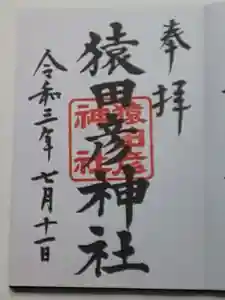 奉拝
猿田彦神社
猿田彦
神社
令和三年七月十一日